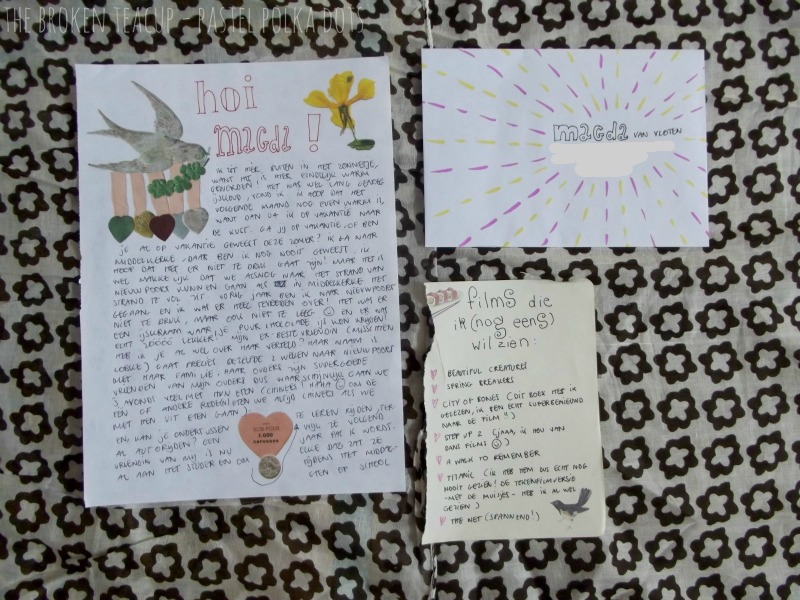 THE BROKEN TEACUP - PASTEL POLKA DOTS
hoi
magda!
IK ZIT HIER BUITEN IN HET ZONNETJE,
WANT HET IS HIER EINDELIJK WARM
GEWORDEN. HET WAS WEL LANG GENOEG
IJSKOUD, VOND IK. IK HOOP DAT HET
VOLGENDE MAAND NOG EVEN WARM IS,
WANT DAN GA IK OP VAKANTIE NAAR
DE KUST. GA JIJ OP VAKANTIE, OF BEN
JE AL OP VAKANTIE GEWEEST DEZE ZOMER? IK GA NAAR
MIDDELKERKE, DAAR BEN IK NOG NOOIT GEWEEST. IK
HOOP DAT HET ER NIET TE DRUK GAAT ZIJN! MAAR HET IS
WEL MAKKELIJK DAT WE ALSNOG NAAR HET STRAND VAN
NIEUWPOORT KUNNEN GAAN ALS IN MIDDELKERKE HET
STRAND TE VOL ZIT. VORIG JAAR BEN IK NAAR NIEUWPOORT
GEGAAN EN IK WAS ER HEEL TEVREDEN OVER! HET WAS ER
NIET TE DRUK, MAAR OOK NIET TE LEEG ☺ EN ER WAS
EEN IJSKRAAM WAAR JE PUUR CHOCOLADE IJS KON KRIJGEN!
ECHT LEKKER! MIJN BESTE VRIENDIN (MISSCHIEN
HEB IK JE AL WEL OVER HAAR VERTELD? HAAR NAAM IS
) GAAT PRECIES DEZELFDE 2 WEKEN NAAR NIEUWPOORT
MET HAAR FAMILIE. HAAR OUDERS ZIJN SUPERGOEDE
VRIENDEN VAN MIJN OUDERS DUS WAARSCHIJNLIJK GAAN WE
'S AVONDS VEEL MET HUN ETEN (CHINEES! HAHA ☺ OM DE
EEN OF ANDERE REDEN ETEN WE ALTIJD CHINEES ALS WE
MET HEN UIT ETEN GAAN)
EN, KAN JE ONDERTUSSEN
AL AUTORIJDEN? EEN
VRIENDIN VAN MIJ IS NU
AL AAN HET STUDEREN OM
1.000
TE LEREN RIJDEN, TERWIJL
ZE VOLGEND
JAAR PAS 18 WORDT.
ELKE DAG ZAT ZE
TIJDENS HET MIDDAGETEN
OP SCHOOL
magda VAN VLOTEN
films die
ik (nog eens)
wil zien:
BEAUTIFUL CREATURES
SPRING BREAKERS
CITY OF BONES (DIT BOEK HEB IK
GELEZEN, IK BEN ECHT SUPERBENIEUWD
NAAR DE FILM!!)
STEP UP 2 (JAAA, IK HOU VAN
DANS FILMS ☺)
A WALK TO REMEMBER
TITANIC (IK HEB HEM DUS ECHT NOG
NOOIT GEZIEN! DE TEKENFILMVERSIE
- MET DE MUISJES - HEB IK AL WEL
GEZIEN)
THE NET (SPANNEND!)